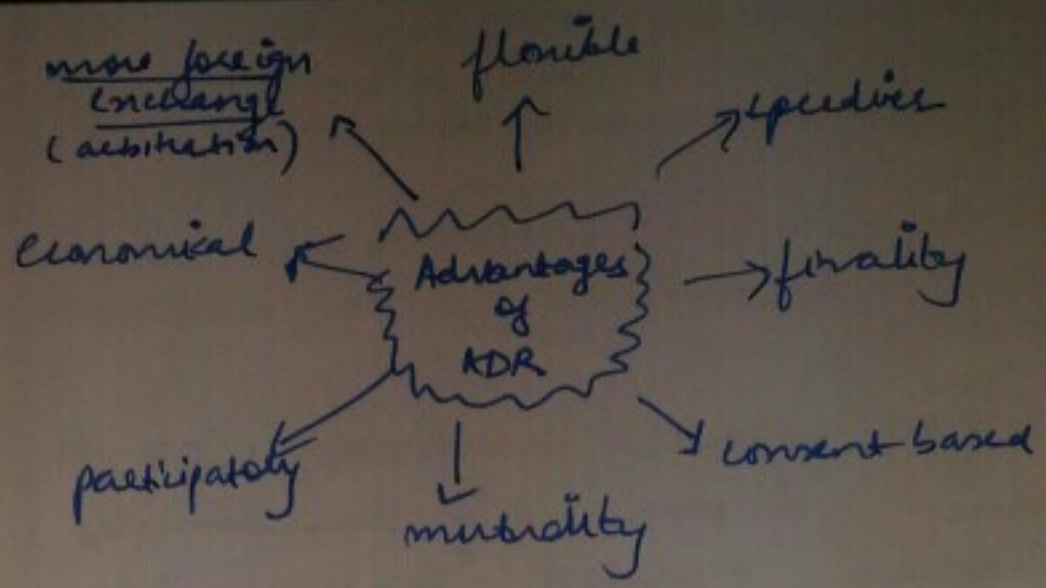 more foreign
exchange
(arbitration)
flexible
speedier
economical
Advantages
of
ADR
finality
participatory
mutuality
consent based